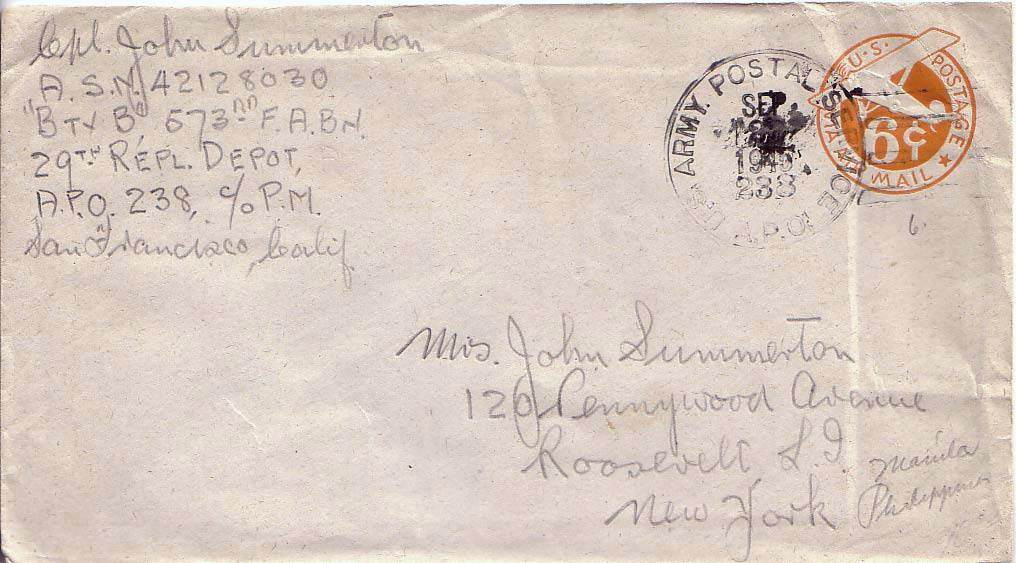 Cpl. John Summerton
A.S.N. 42128030
"Bty B" 673rd F.A.Bn.
29TH REPL. DEPOT,
A.P.O. 238, c/o P.M.
San Francisco, Calif
U.S. ARMY POSTAL SERVICE
SEP
1945
238
A.P.O.
U.S. POSTAGE
VIA AIR MAIL
6¢
6.
Mrs. John Summerton
120 Pennywood Avenue
Roosevelt L.I.
New York
Manila
Philippines